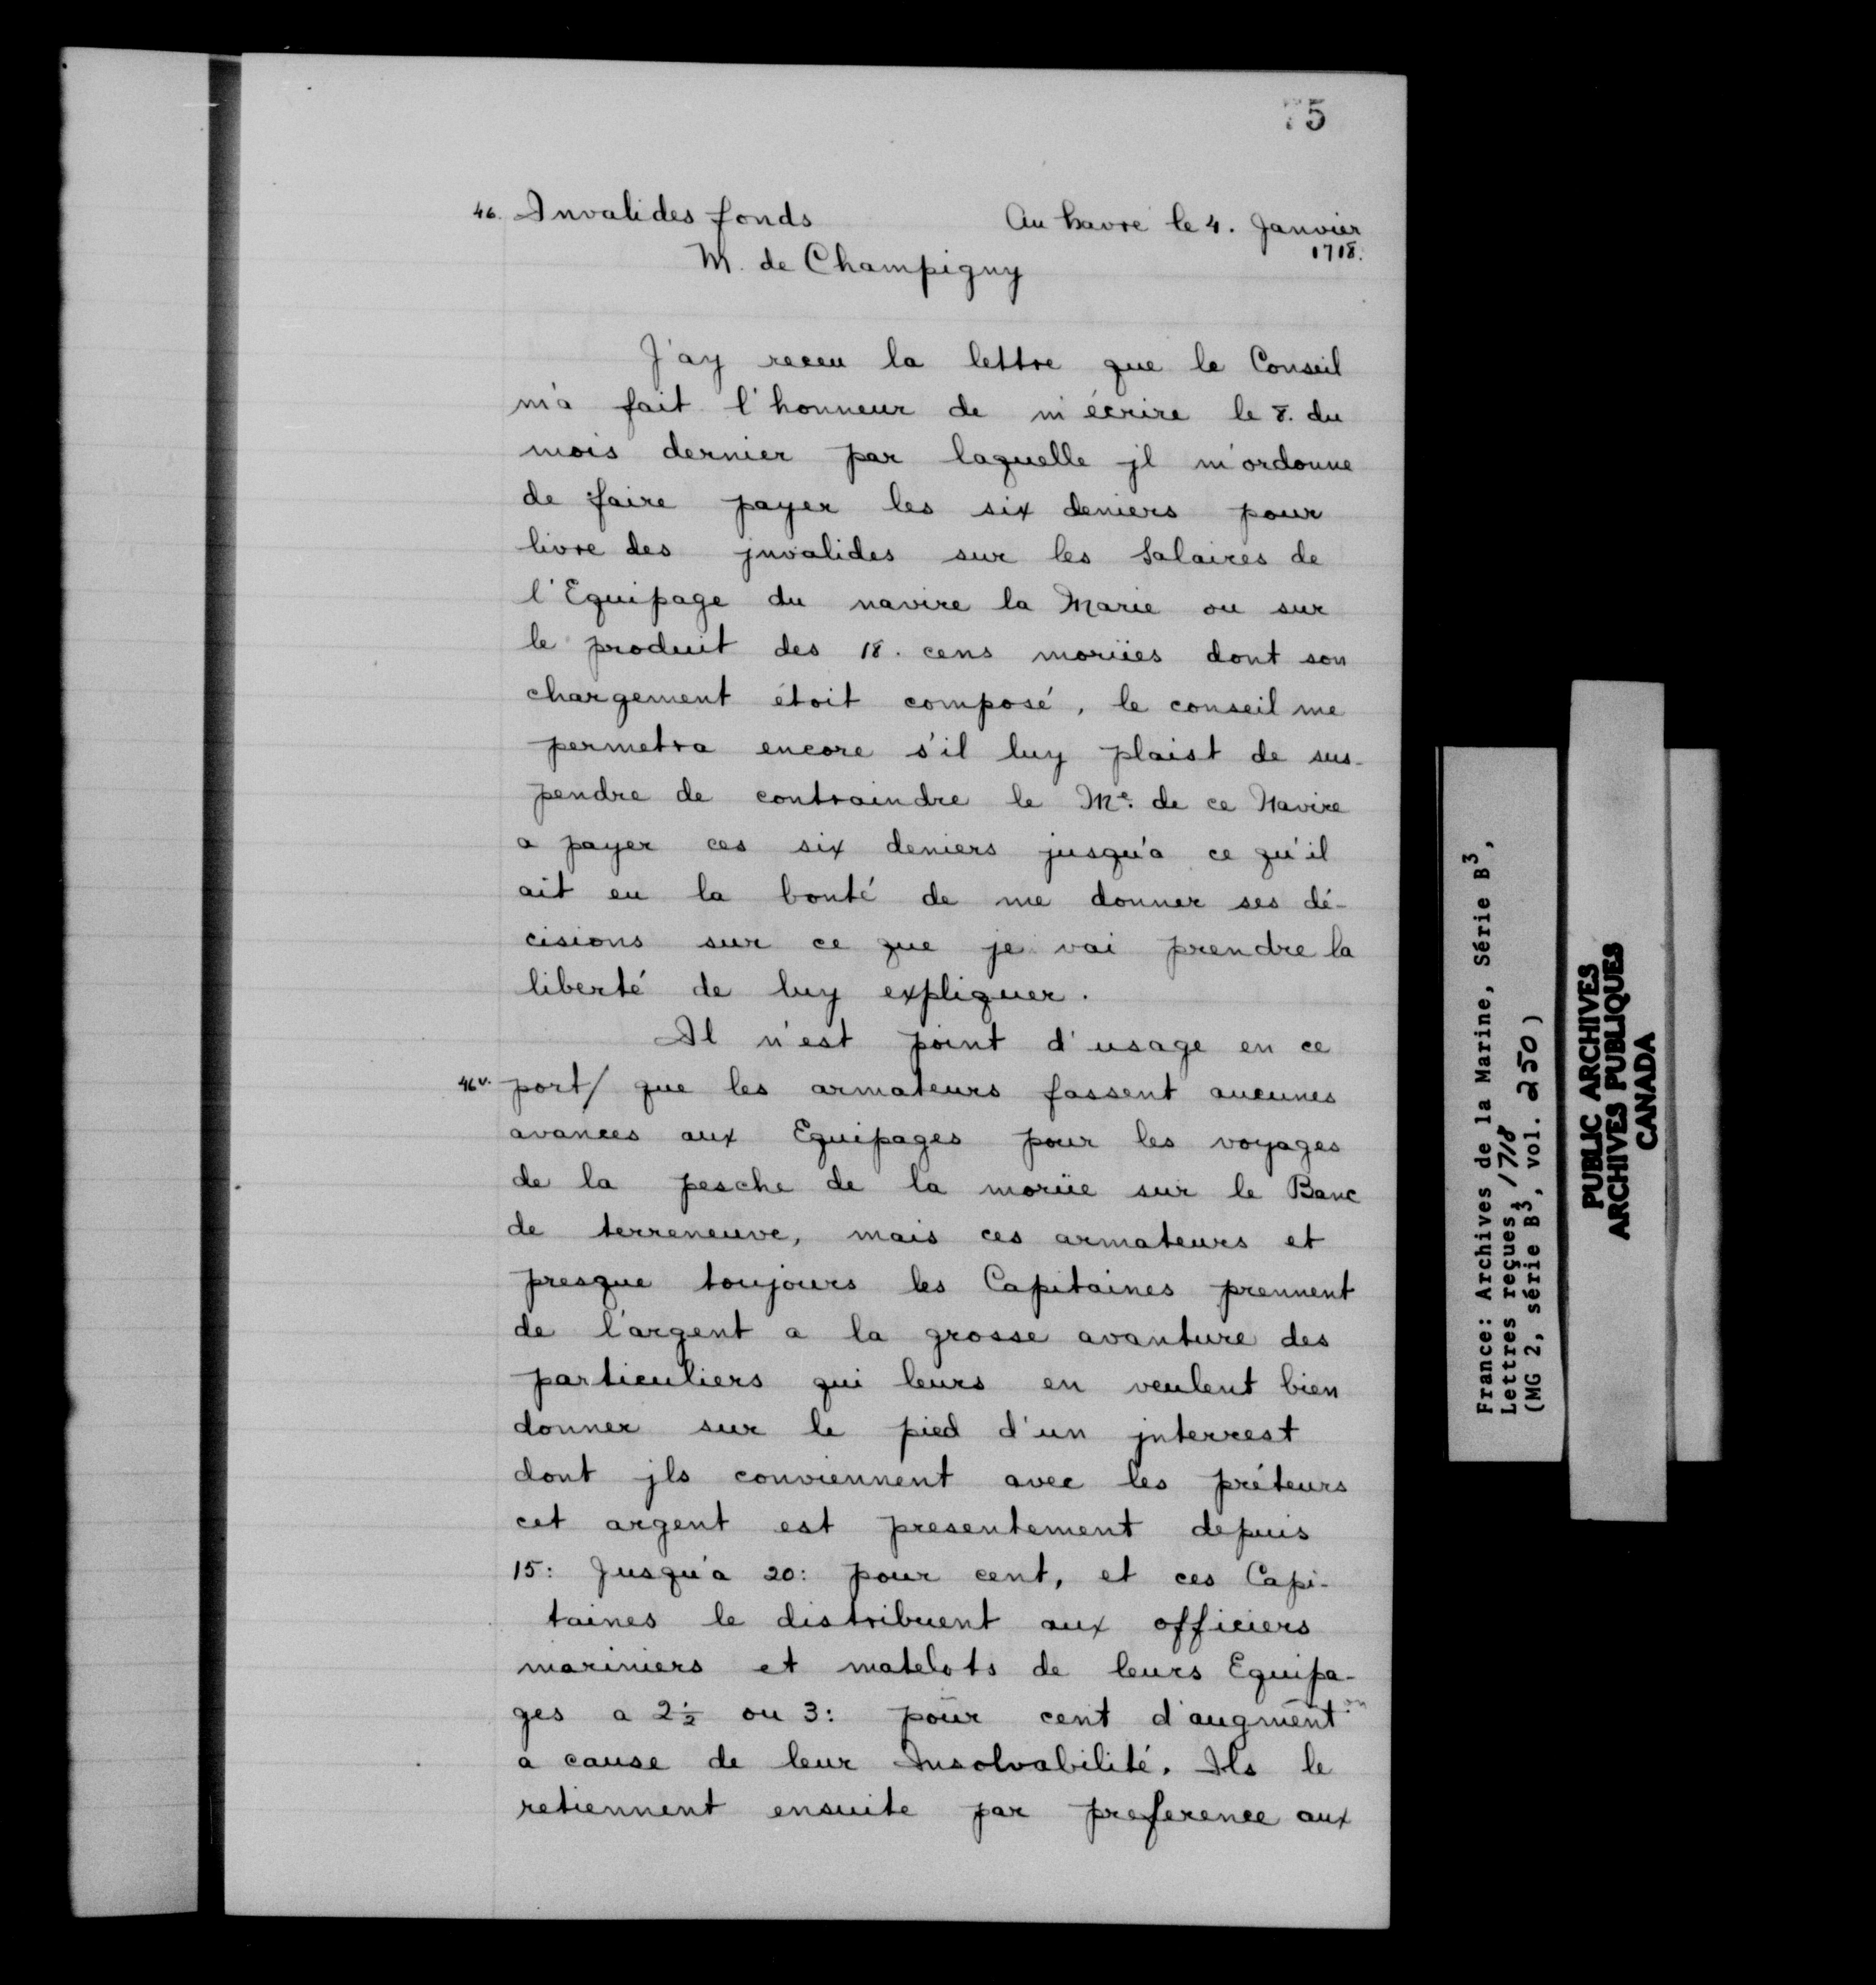 75
46. Invalides fonds
Au havre le 4. Janvier
1718.
M. de Champigny
J'ay receu la lettre que le Conseil
m'a fait l'honneur de m'écrire le 8. du
mois dernier par laquelle jl m'ordonne
de faire payer les six deniers pour
livre des jnvalides sur les Salaires de
l'Equipage du navire la Marie ou sur
le produit des 18. cens moriies dont son
chargement étoit composé, le conseil me
permetra encore s'il luy plaist de sus-
pendre de contraindre le Me. de ce Navire
a payer ces six deniers jusqu'a ce qu'il
ait eu la bonté de me donner ses dé-
cisions sur ce que je vai prendre la
liberté de luy expliquer.
Il n'est point d'usage en ce
46v. port/ que les armateurs fassent aucunes
avances aux Equipages pour les voyages
de la pesche de la morüe sur le Banc
de terreneuve, mais ces armateurs et
presque toujours les Capitaines prennent
de l'argent a la grosse avanture des
particuliers qui leurs en veulent bien
donner sur le pied d'un jnterrest
dont jls conviennent avec les préteurs
cet argent est presentement depuis
15: Jusqu'a 20: pour cent, et ces Capi-
taines le distribuent aux officiers
mariniers et matelots de leurs Equipa-
ges a 2½ ou 3: pour cent d'augment.on
a cause de leur Insolvabilité. Ils le
retiennent ensuite par preference aux
France: Archives de la Marine, Série B3,
Lettres reçues, 1718
(MG 2, série B3, vol. 250)
PUBLIC ARCHIVES
ARCHIVES PUBLIQUES
CANADA